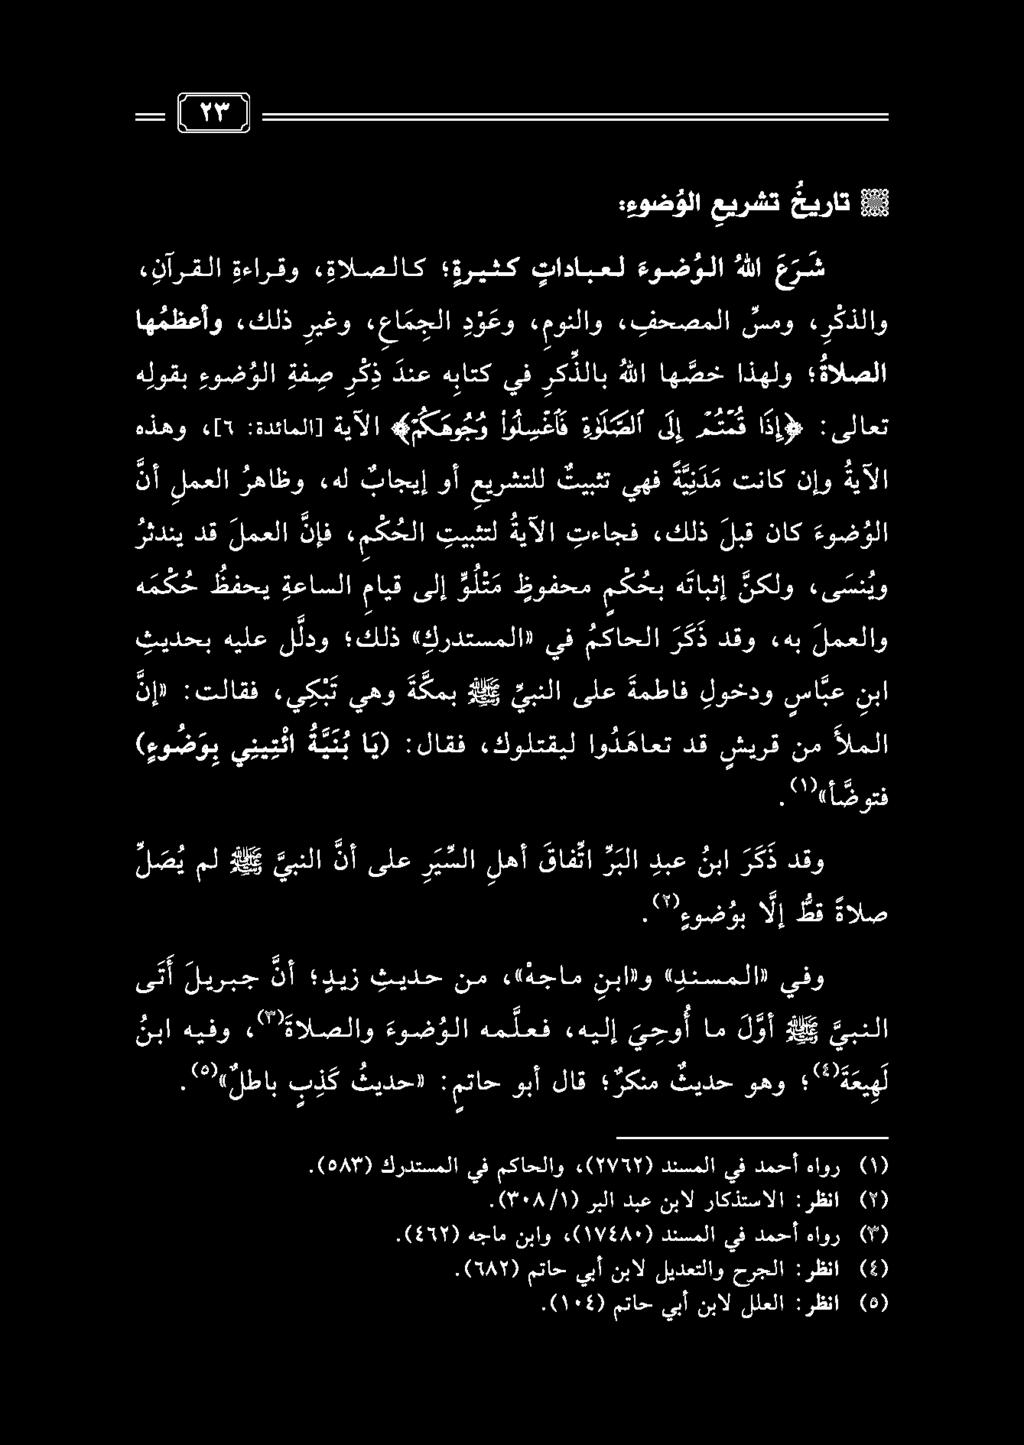 ٢٣
تاريخُ تشريعِ الوُضوءِ:
شَرَعَ اللهُ الوُضوءَ لعباداتٍ كثيرةٍ؛ كالصلاةِ، وقراءةِ القرآنِ،
والذكْرِ، ومسِّ المصحفِ، والنومِ، وعَوْدِ الجِمَاعِ، وغيرِ ذلك، وأعظمُها
الصلاةُ؛ ولهذا خصَّها اللهُ بالذِّكرِ في كتابِه عندَ ذِكْرِ صِفةِ الوُضوءِ بقولِه
تعالى: ﴿إِذَا قُمۡتُمۡ إِلَى ٱلصَّلَوٰةِ فَٱغۡسِلُواْ وُجُوهَكُمۡ﴾ الآية [المائدة: ٦]، وهذه
الآيةُ وإن كانت مَدَنِيَّةً فهي تثبيتٌ للتشريعِ أو إيجابٌ له، وظاهرُ العملِ أنَّ
الوُضوءَ كان قبلَ ذلك، فجاءتِ الآيةُ لتثبيتِ الحُكْمِ، فإنَّ العملَ قد يندثرُ
ويُنسَى، ولكنَّ إثباتَه بحُكْمٍ محفوظٍ مَتْلُوٍّ إلى قيامِ الساعةِ يحفظُ حُكْمَه
والعملَ به، وقد ذَكَرَ الحاكمُ في «المستدركِ» ذلك؛ ودلَّل عليه بحديثِ
ابنِ عبَّاسٍ ودخولِ فاطمةَ على النبيِّ ﷺ بمكَّةَ وهي تَبْكِي، فقالت: «إنَّ
الملأَ من قريشٍ قد تعاهَدُوا ليقتلوك، فقال: (يَا بُنَيَّةُ ائْتِينِي بِوَضُوءٍ)
فتوضَّأ»(١).
وقد ذَكَرَ ابنُ عبدِ البَرِّ اتِّفاقَ أهلِ السِّيَرِ على أنَّ النبيَّ ﷺ لم يُصَلِّ
صلاةً قطُّ إلَّا بوُضوءٍ(٢).
وفي «المسندِ» و«ابنِ ماجهْ»، من حديثِ زيدٍ؛ أنَّ جبريلَ أَتَى
النبيَّ ﷺ أوَّلَ ما أُوحِيَ إليه، فعلَّمه الوُضوءَ والصلاةَ(٣)، وفيه ابنُ
لَهِيعَةَ(٤)؛ وهو حديثٌ منكرٌ؛ قال أبو حاتمٍ: «حديثُ كَذِبٍ باطلٌ»(٥).
(١) رواه أحمد في المسند (٢٧٦٢)، والحاكم في المستدرك (٥٨٣).
(٢) انظر: الاستذكار لابن عبد البر (٣٠٨/١).
(٣) رواه أحمد في المسند (١٧٤٨٠)، وابن ماجه (٤٦٢).
(٤) انظر: الجرح والتعديل لابن أبي حاتم (٦٨٢).
(٥) انظر: العلل لابن أبي حاتم (١٠٤).